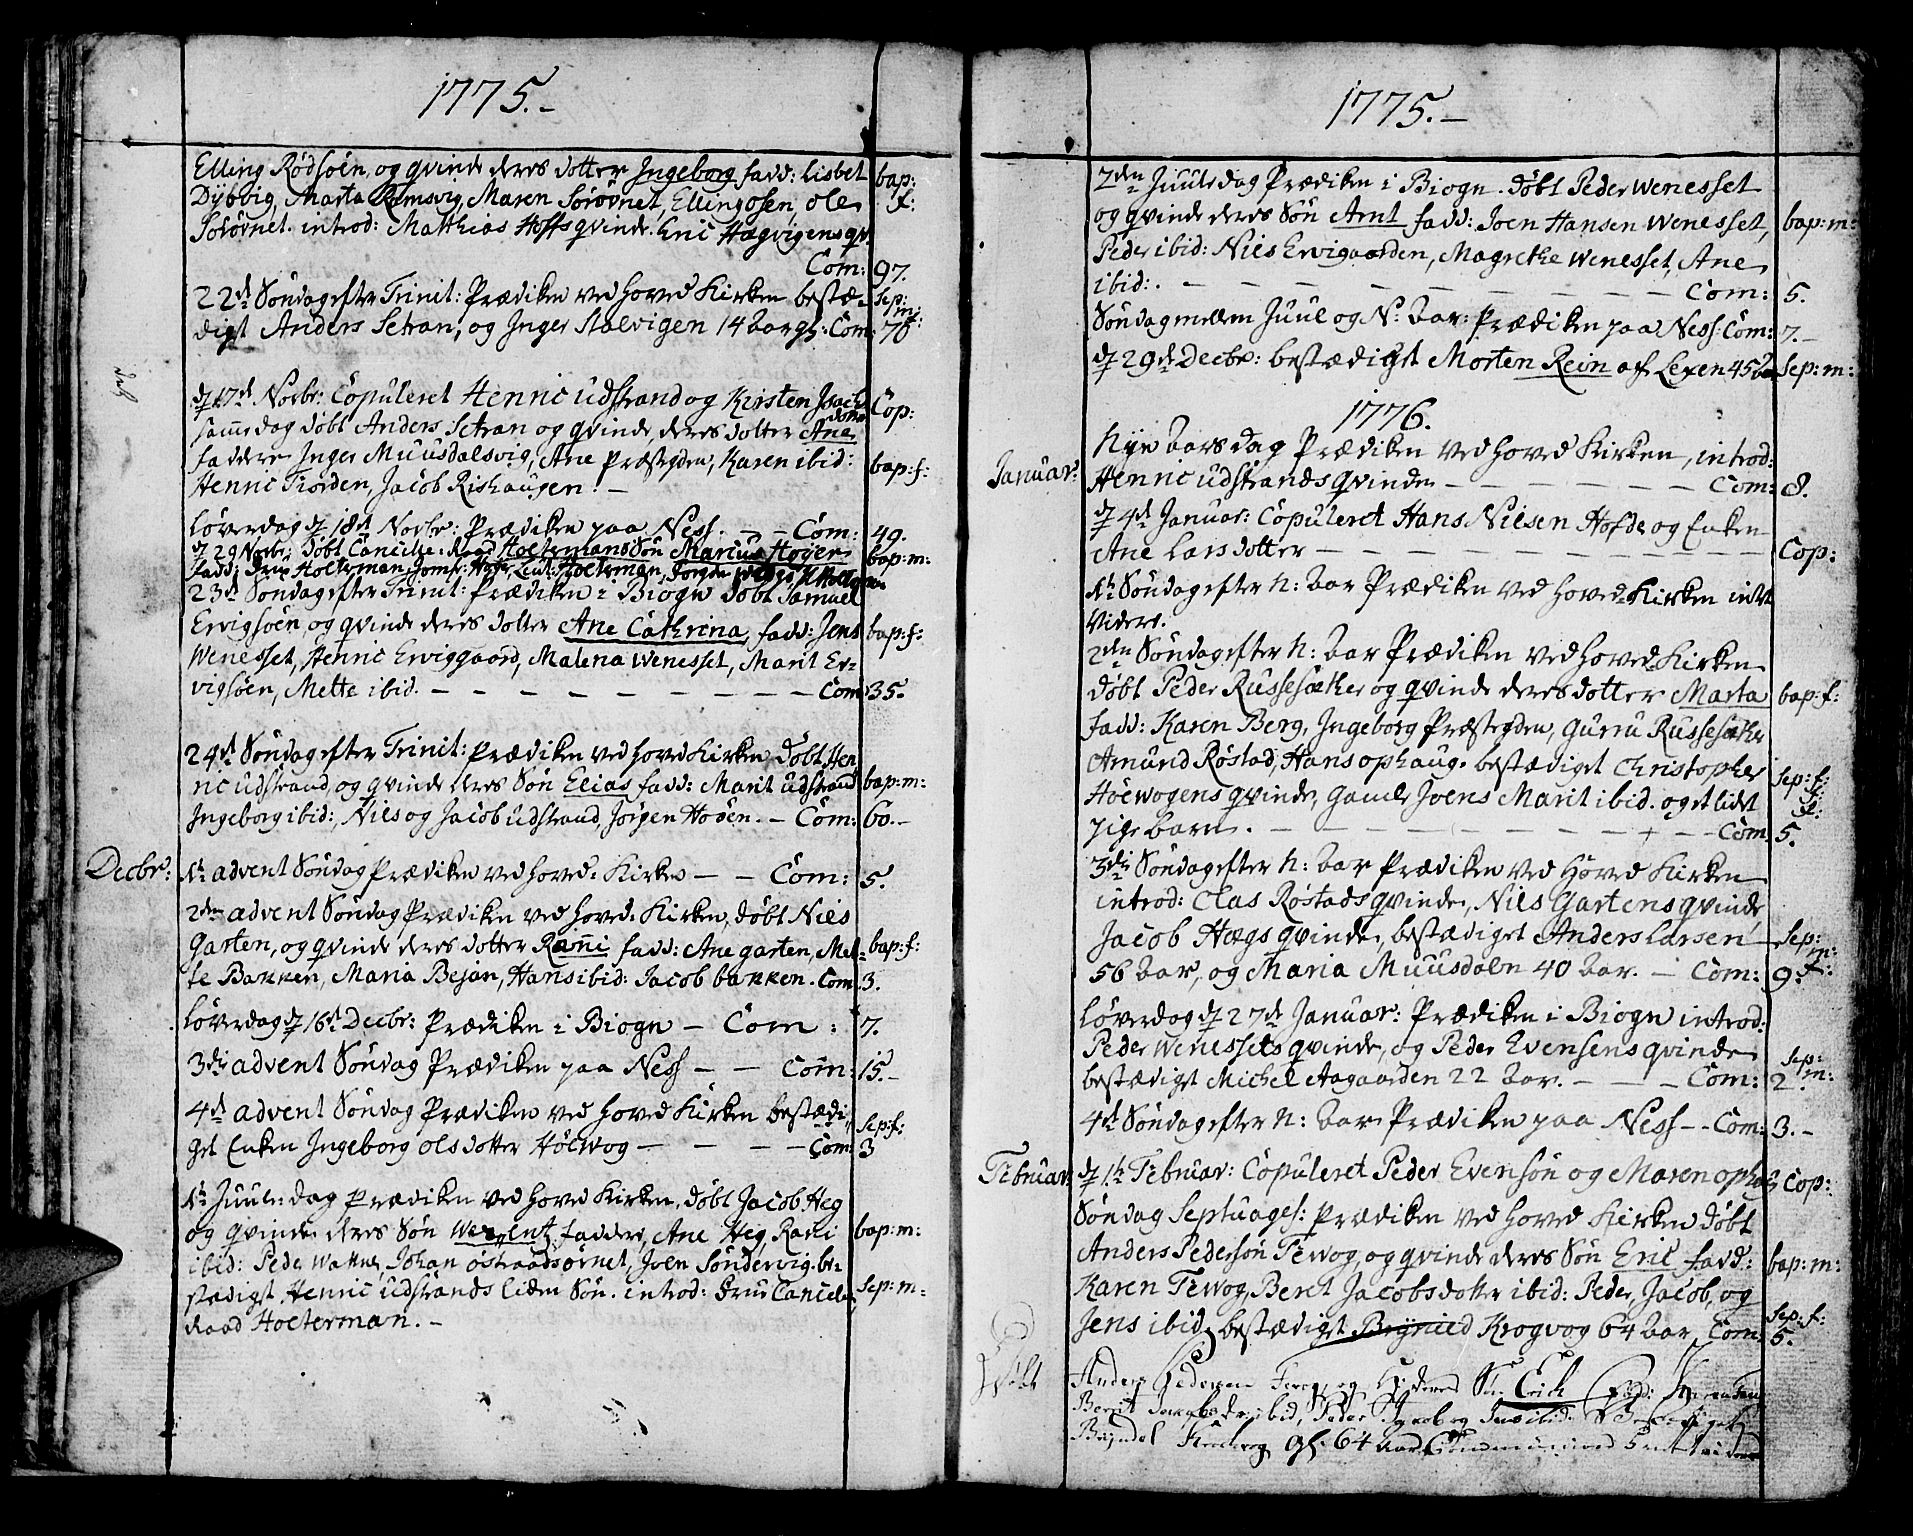 1775.-
Elling Rødsøen, og qvinde deres dotter Ingeborg fadd: Lisbet bap:
Dybvig, Marta Ramsvig, Maren Sørøvnet, Ellingosen, ole f:
Sørøvnet. introd: Matthias Hoffs qvinde. Eric Hægvigens qv.
Com: 97.
22de Søndag efter Trinit: Prædiken ved hoved Kirken bestæ- sep:
digt Anders Setran, og Inger Stalvigen 14 Aar gl: Com: 78 m: f:
d 17de Novbr: Copuleret Henric udstrand og Kirsten Isachs Cop:
dotter
samme dag døbt Anders Setran og qvinde, deres dotter Ane
faddere Inger Muusdalsvig, Ane Præstegrden, Karen ibid: bap: f:
Henric Fiørden, Jacob Rishaugen. -
Løverdag d 18de Novbr: Prædiken paa Ness. - - Com: 49.
d 29 Novbr: døbt Cancelie-Raad Holtermans Søn Marius Høyer bap: m:
fadd: Frue Holterman, Jomfr: Høyer, Leut: Holterman, Jørgen
23de Søndag efter Trinit: Prædiken i Biogn døbt Samuel
Ervigsøen, og qvinde deres dotter Ane Cathrina, fadd: Jens bap: f:
Wenesset, Henric Erviggaard, Malena Wenesset, Marit Er-
vigsøen, Mette ibid. - - - - - - - - Com: 35.
24de Søndag efter Trinit: Prædiken ved hoved Kirken, døbt Hen
ric udstrand, og qvinde deres Søn Elias fadd: Marit udstrand bap: m:
Ingeborg ibid:, Niels og Jacob udstrand, Jørgen Hoøen. - Com: 60.-
Decbr: 1te advent Søndag Prædiken ved hoved: Kirken - - Com: 5.
2den advent Søndag Prædiken ved hoved: Kirken, døbt Niels
Garten, og qvinde deres dotter Ranni fadd: Ane garten, Met- bap: f:
te Bakken, Maria Bejan, Hans ibid: Jacob bakken. Com: 3.
Løverdag d 16de Decbr: Prædiken i Biogn - Com: 7.
3die advent Søndag Prædiken paa Ness - - Com: 15.-
4de advent Søndag Prædiken ved hoved Kirken bestædi-
get Enken Ingeborg olsdotter Høewog - - - - Com: 3 sep: f:
1te Juule dag Prædiken ved hoved Kirken, døbt Jacob Heg
og qvinde deres Søn Werent faddere, Ane Heg, Rani bap: m:
ibid: Peder Watten Johan østraadsørnet, Joen Søndervig. be-
stædigt Henric udstrands liden Søn. introd: Frue Cancelie sep: m:
Raad Holterman. -
1775.-
2den Juuledag Prædiken i Biogn. døbt Peder Wenesset
og qvinde deres Søn Arnt fadd: Joen Hansen Wenesset, bap: m:
Peder ibid: Niels Ervigaarden, Magrethe Wenesset, Ane
ibid: . - - - - - - - - Com: 5.
Søndag mellem Juul og N: Aar: Prædiken paa Ness: Com: 7.-
d 29de Decbr: bestædiget Morten Rein af Lexen 45 Aar sep: m:
1776.
Januar: Nyt Aars dag Prædiken ved hoved Kirken, introd:
Henric udstrands qvinde - - - - - - Com: 8.
d 4de Januar: Copuleret Hans Nielsen Hofde og Enken
Ane Larsdotter - - - - - - - - - Cop:
1te Søndag efter N: Aar Prædiken ved hoved Kirken intet
videre.
2den Søndag efter N: Aar Prædiken ved hoved Kirken
døbt Peder Russesæther og qvinde deres dotter Marta bap: f:
fadd: Karen Berg, Ingeborg Præstegrden, Gurru Russesæther
Amund Røstad, Hans ophaug. bestædiget Christopher sep: f:
Høewogens qvinde, gamle Joens Marit ibid. og et lidet f:
pige barn. - - - - - - - - Com: 5. f:
3die Søndag efter N: Aar Prædiken ved hoved Kirken
introd: Clas Røstads qvinde, Niels Gartens qvinde
Jacob Hægs qvinde, bestædiget Anders Larsen sep: m:
56 Aar, og Maria Muusdalen 40 Aar. - Com: 9. f:
Løverdag d 27de Januar: Prædiken i Biogn introd:
Peder Wenessets qvinde, og Peder Evensens qvinde
bestædiget Michel Aagaarden 22 Aar. - - - Com: 2. sep: m:
4de Søndag efter N: Aar Prædiken paa Ness - - Com: 3.-
Februar: d 1te Februar: Copuleret Peder Evensøn og Maren ophaug Cop:
Søndag Septuages: Prædiken ved hoved Kirken døbt
Anders Pedersøn Tewog, og qvinde deres Søn Eric fadd: bap: m:
Karen Tewog, Beret Jacobsdotter ibid: Peder, Jacob, og
Jens ibid: bestædiget Brynild Krogvog 64 Aar, Com: 5. sep: f:
Døbt Anders Pedersen og Hustrues Søn Erich fadd:
Berit Jacobsdr: ibid, Peder, Jacob og Jens ibid:
64 Aar